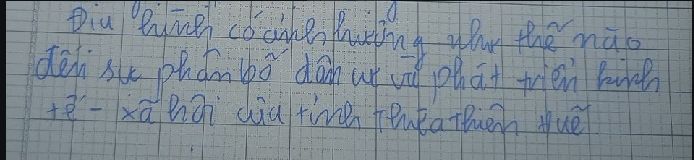 Địa hình có ảnh hưởng như thế nào
đến sự phân bố dân cư và phát triển kinh
tế - xã hội của tỉnh Thừa Thiên Huế